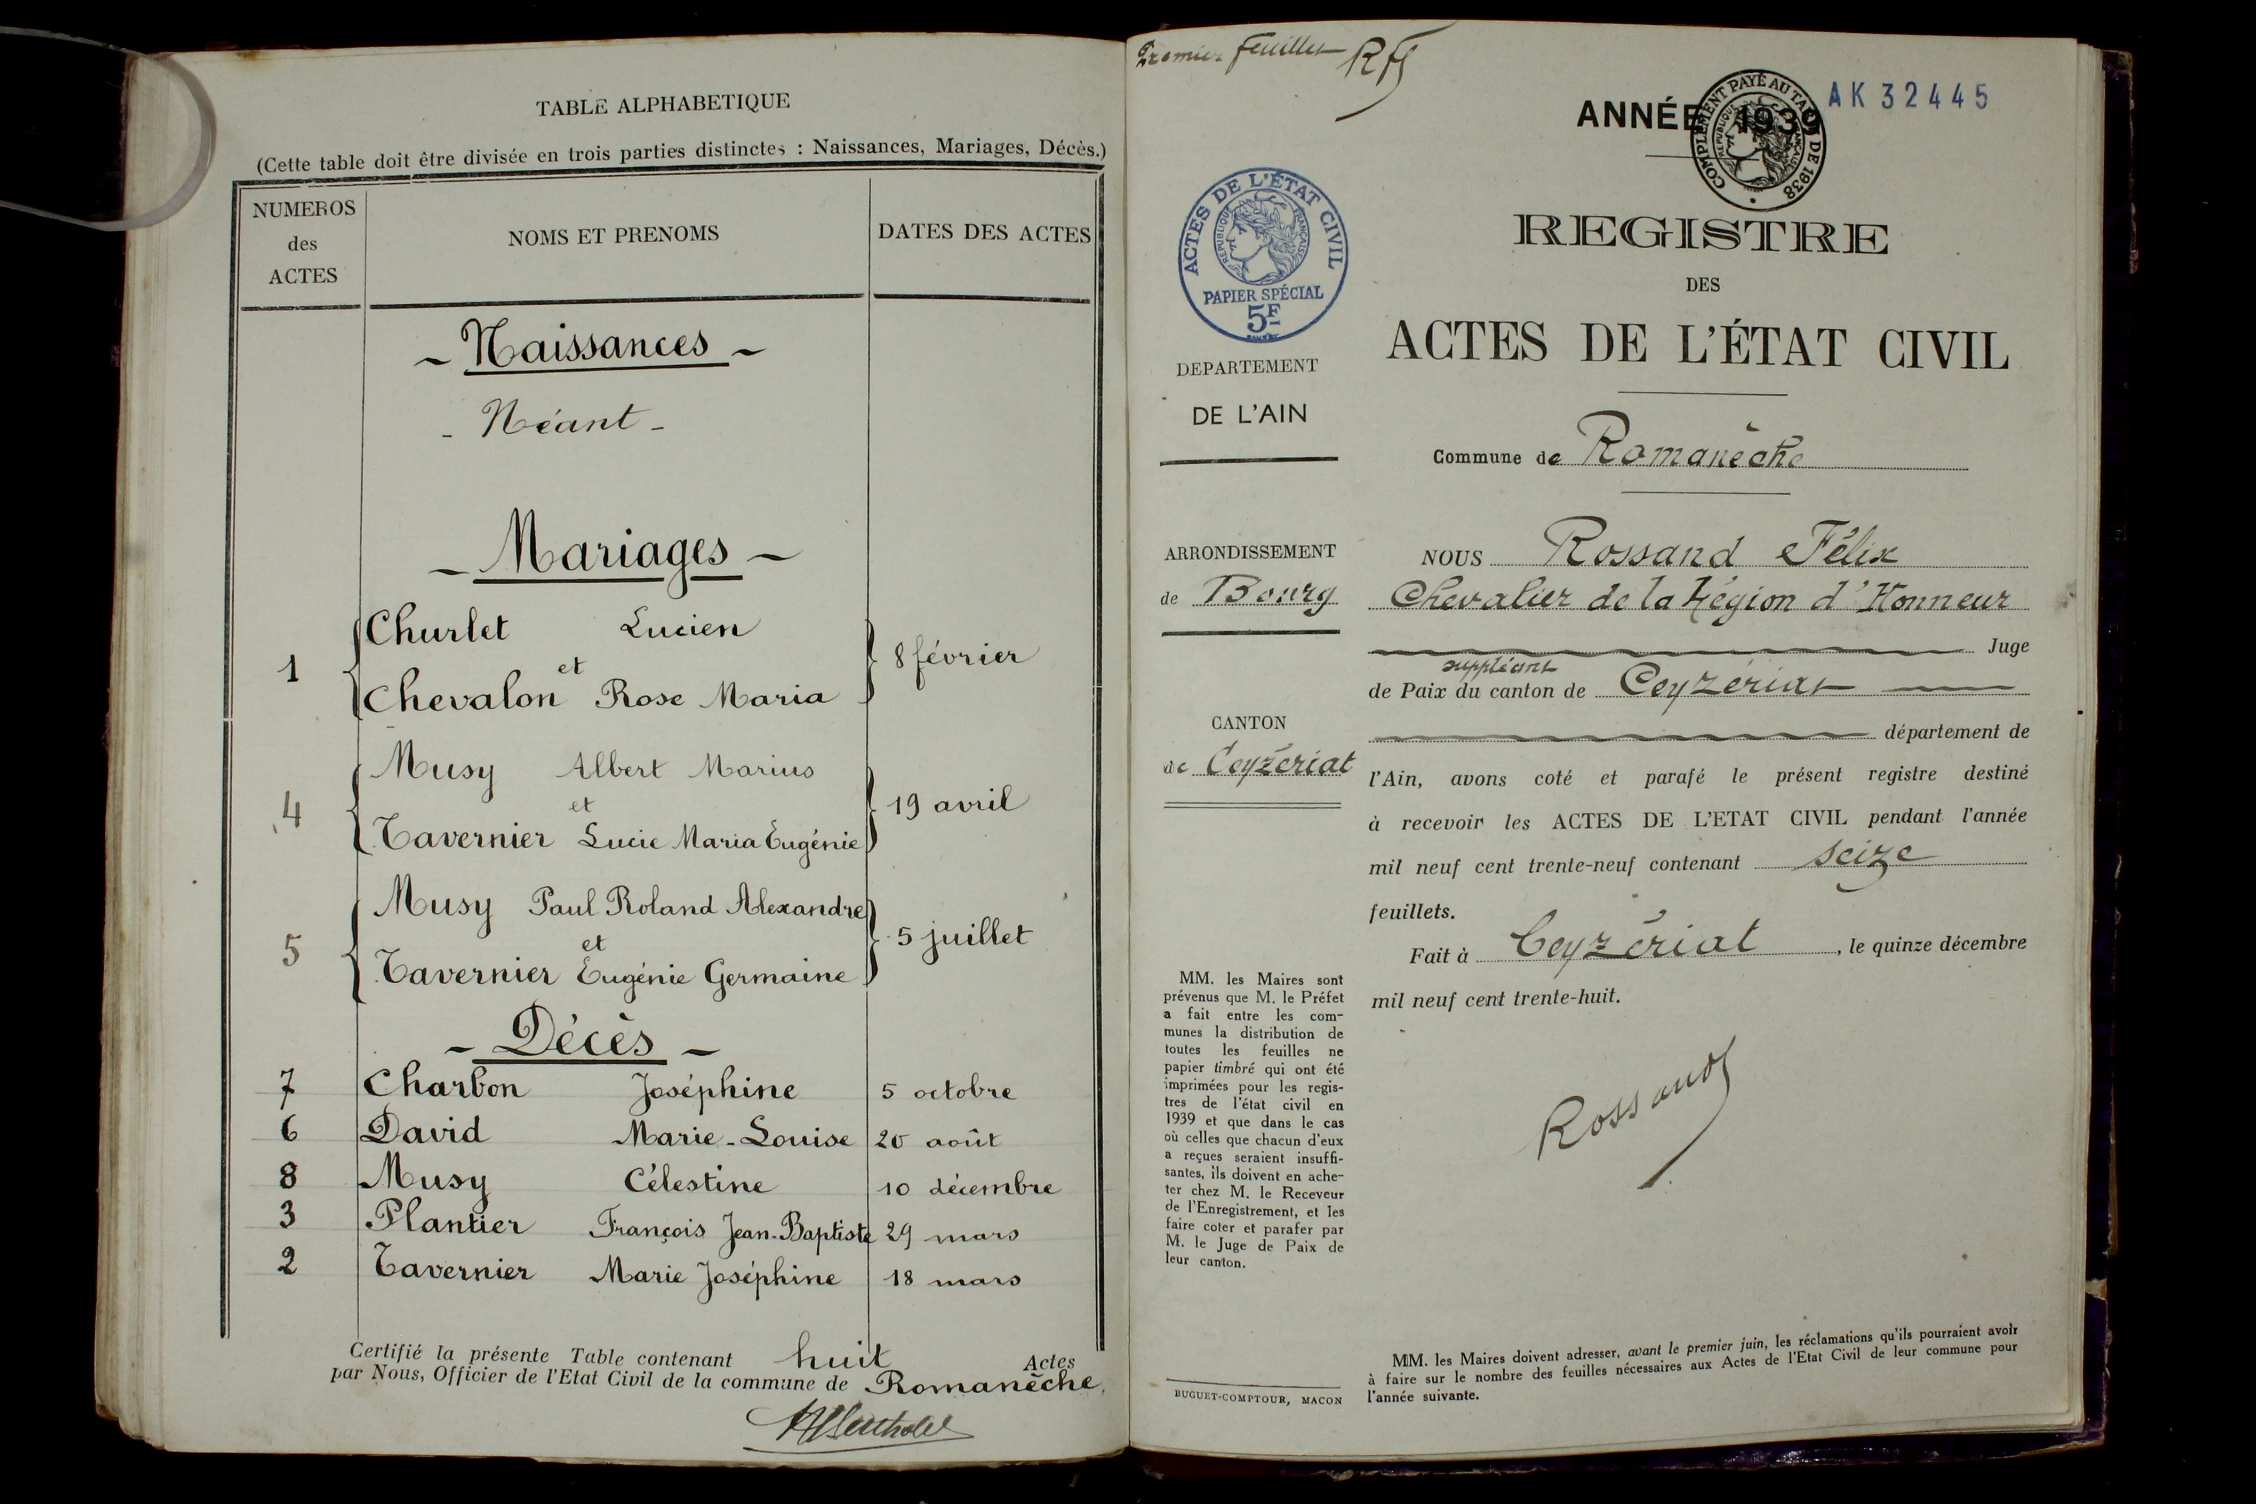 TABLE ALPHABETIQUE
(Cette table doit être divisée en trois parties distinctes : Naissances, Mariages, Décès.)
NUMEROS
des
ACTES
NOMS ET PRENOMS
DATES DES ACTES
- Naissances -
- Néant -
- Mariages -
Churlet Lucien
1 et 8 février
Chevalon Rose Maria
Musy Albert Marius
4 et 19 avril
Tavernier Lucie Maria Eugénie
Musy Paul Roland Alexandre
5 et 5 juillet
Tavernier Eugénie Germaine
- Décès -
7 Charbon Joséphine 5 octobre
6 David Marie-Louise 20 août
8 Musy Célestine 10 décembre
3 Plantier François Jean-Baptiste 29 mars
2 Tavernier Marie Joséphine 18 mars
Certifié la présente Table contenant huit Actes
par Nous, Officier de l'Etat Civil de la commune de Romanèche.
Premier feuillet
COMPLEMENT PAYÉ AU TARIF DE 1938
RÉPUBLIQUE FRANÇAISE
AK 32445
ANNÉE 1939
ACTES DE L'ÉTAT CIVIL
RÉPUBLIQUE FRANÇAISE
PAPIER SPÉCIAL
5F
DEPARTEMENT
DE L'AIN
ARRONDISSEMENT
de Bourg
CANTON
de Ceyzériat
MM. les Maires sont
prévenus que M. le Préfet
a fait entre les com-
munes la distribution de
toutes les feuilles ne
papier timbré qui ont été
imprimées pour les regis-
tres de l'état civil en
1939 et que dans le cas
où celles que chacun d'eux
a reçues seraient insuffi-
santes, ils doivent en ache-
ter chez M. le Receveur
de l'Enregistrement, et les
faire coter et parafer par
M. le Juge de Paix de
leur canton.
BUGUET-COMPTOUR, MACON
REGISTRE
DES
ACTES DE L'ÉTAT CIVIL
Commune de Romanèche
NOUS Rossand Félix
Chevalier de la Légion d'Honneur
Juge
suppléant
de Paix du canton de Ceyzériat
département de
l'Ain, avons coté et parafé le présent registre destiné
à recevoir les ACTES DE L'ETAT CIVIL pendant l'année
mil neuf cent trente-neuf contenant seize
feuillets.
Fait à Ceyzériat, le quinze décembre
mil neuf cent trente-huit.
Rossand
MM. les Maires doivent adresser, avant le premier juin, les réclamations qu'ils pourraient avoir
à faire sur le nombre des feuilles nécessaires aux Actes de l'Etat Civil de leur commune pour
l'année suivante.